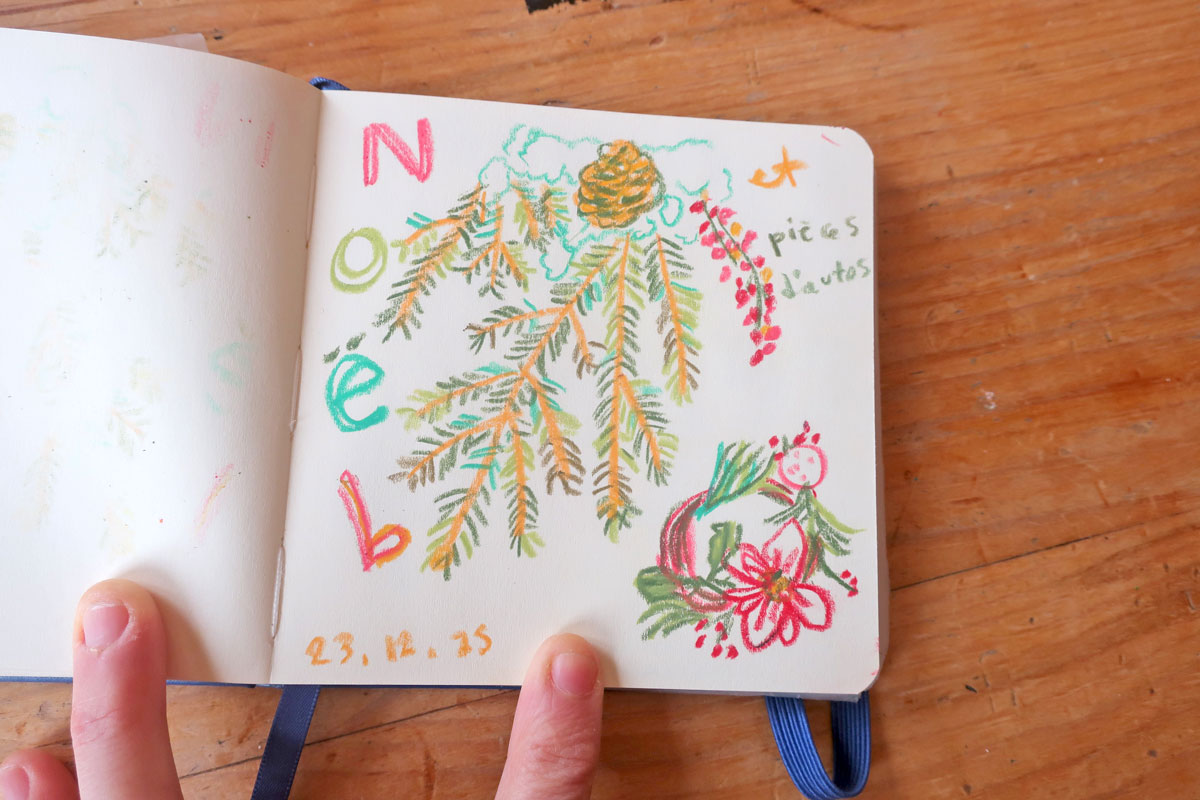 NOël
et
pièces
d'autos
23.12.25